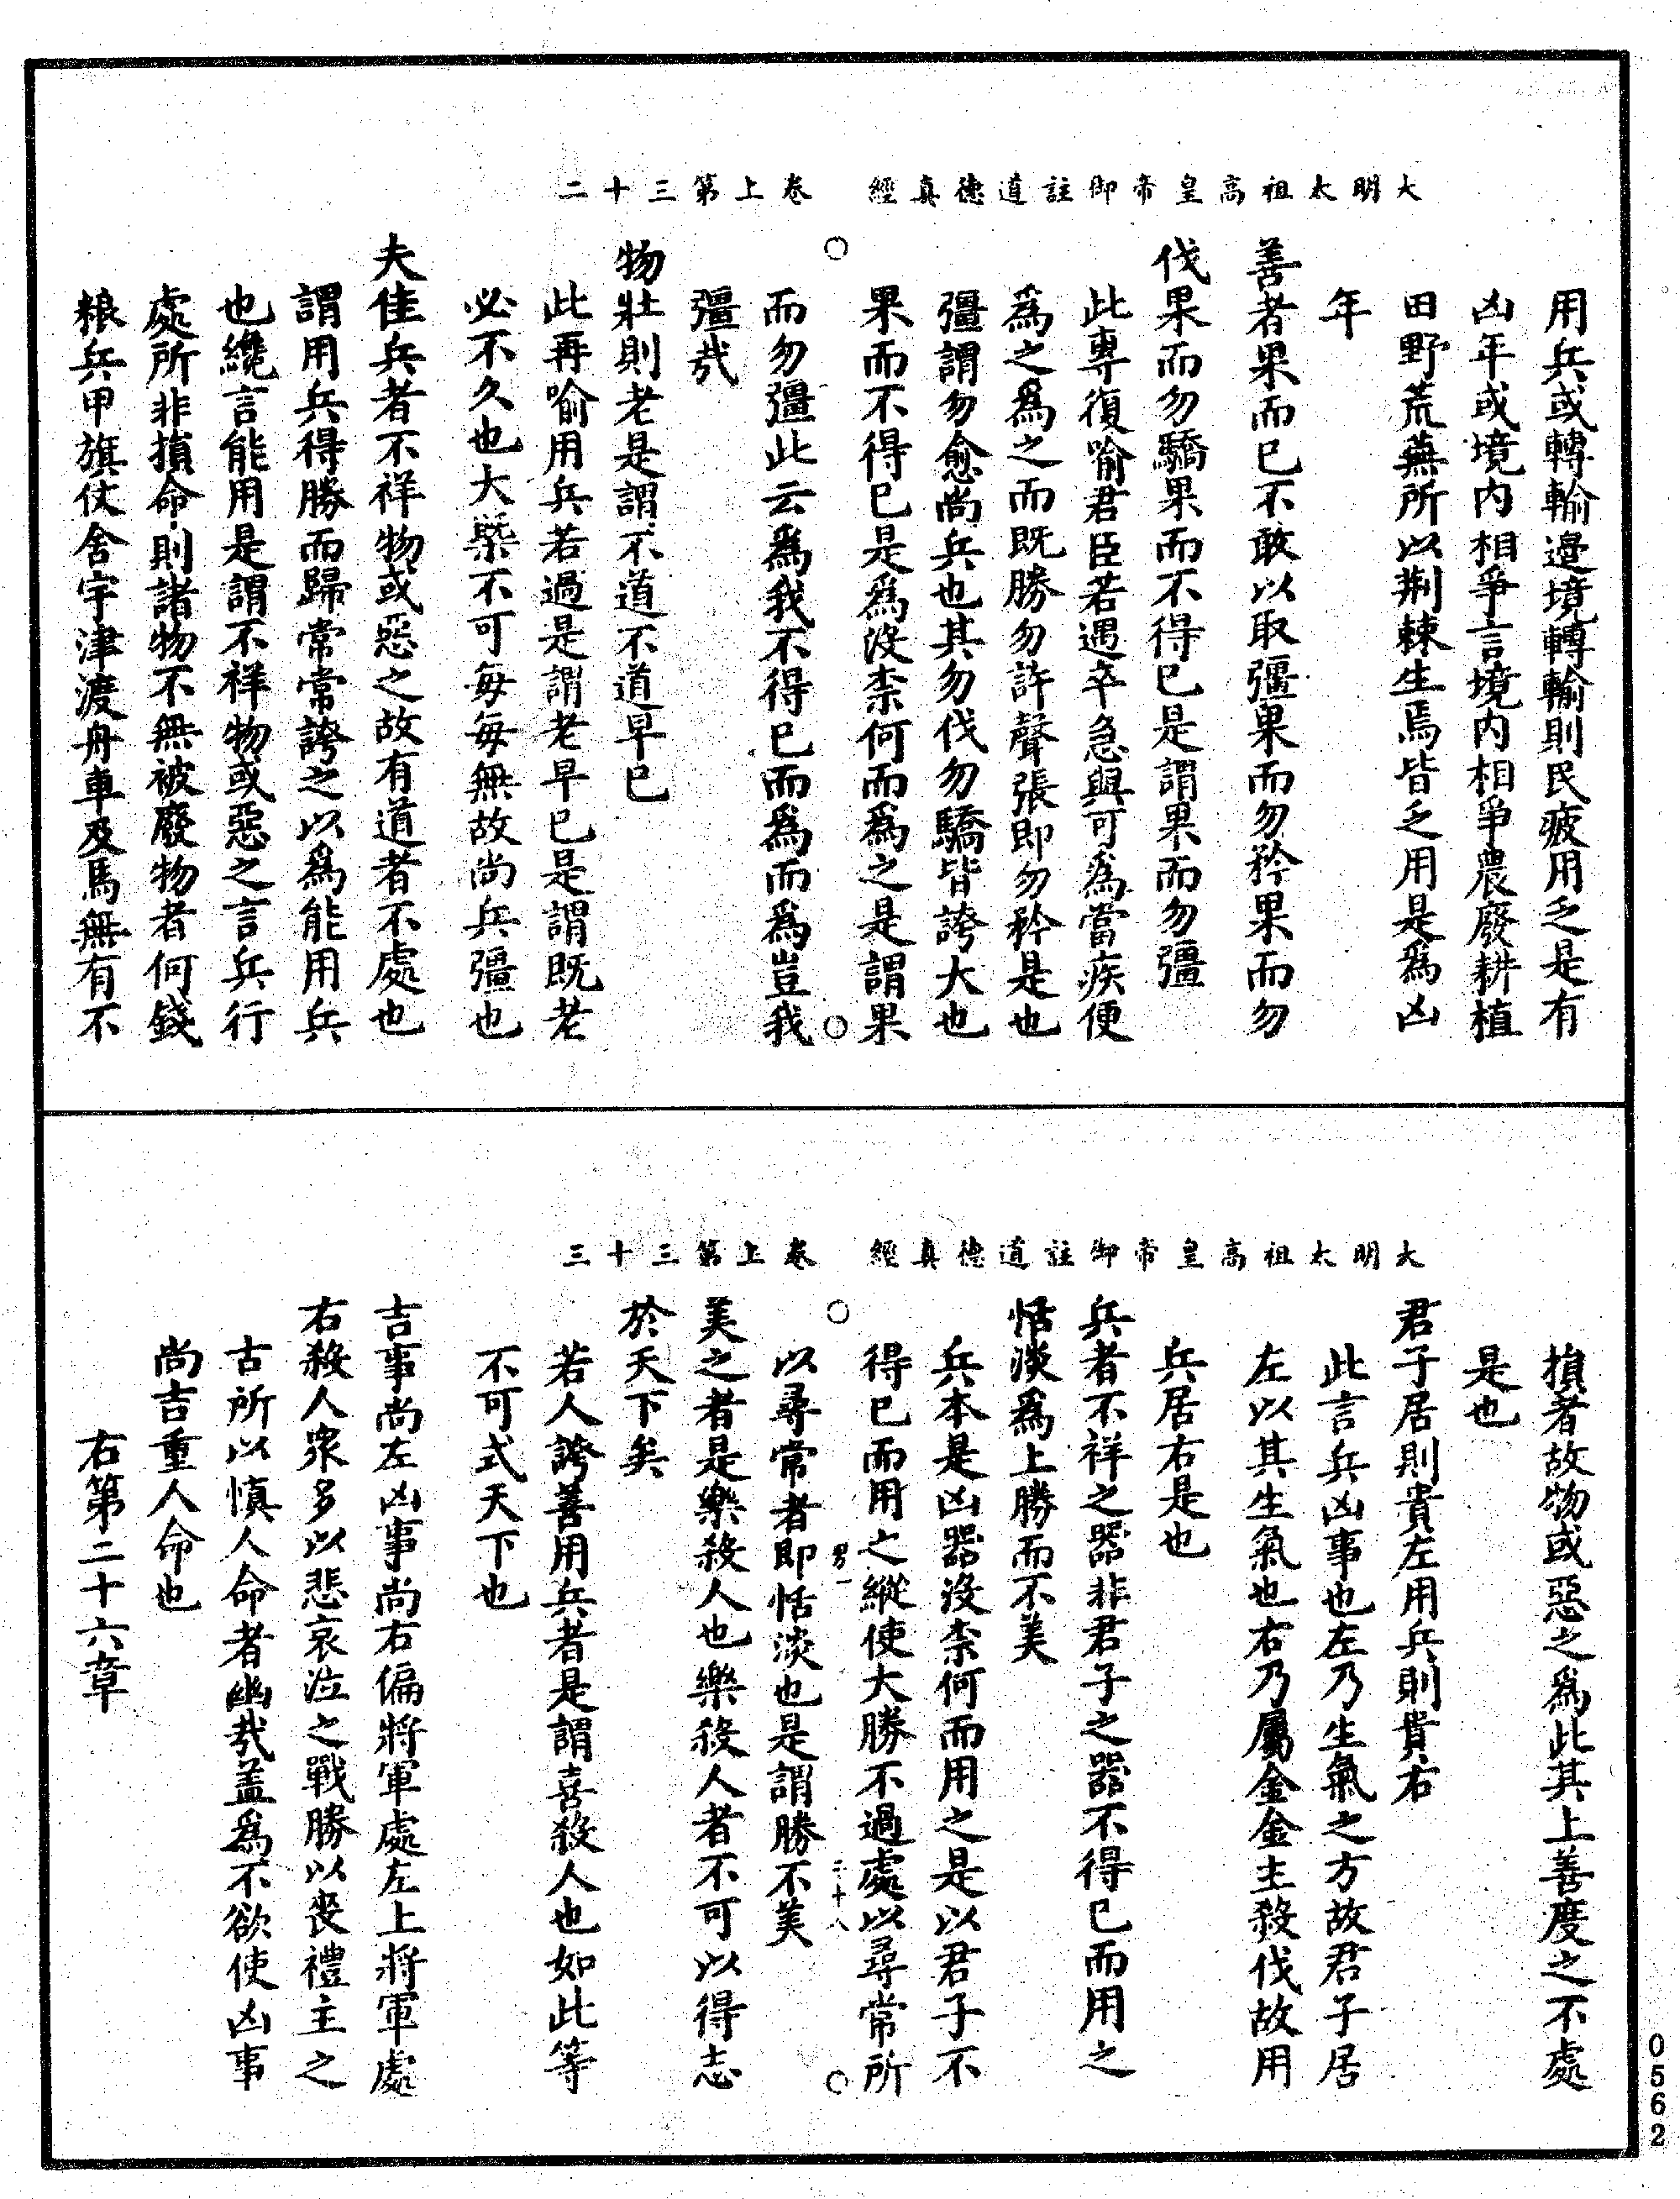 大明太祖高皇帝御註道德真經　卷上第三十二
用兵或轉輸邊境轉輸則民疲用乏是有
凶年或境內相爭言境內相爭農廢耕植
田野荒蕪所以荆棘生焉皆乏用是爲凶
年
善者果而已不敢以取彊果而勿矜果而勿
伐果而勿驕果而不得已是謂果而勿彊
此專復喻君臣若遇卒急與可爲當疾便
爲之爲之而既勝勿許聲張即勿矜是也
彊謂勿愈尚兵也其勿伐勿驕皆誇大也
果而不得已是爲沒柰何而爲之是謂果
而勿彊此云爲我不得已而爲而爲豈我
彊哉
物壯則老是謂不道不道早已
此再喻用兵若過是謂老早已是謂既老
必不久也大槩不可每每無故尚兵彊也
夫佳兵者不祥物或惡之故有道者不處也
謂用兵得勝而歸常常誇之以爲能用兵
也纔言能用是謂不祥物或惡之言兵行
處所非損命則諸物不無被廢物者何錢
粮兵甲旗仗舍宇津渡舟車及馬無有不
大明太祖高皇帝御註道德真經　卷上第三十三
損者故物或惡之爲此其上善度之不處
是也
君子居則貴左用兵則貴右
此言兵凶事也左乃生氣之方故君子居
左以其生氣也右乃屬金金主殺伐故用
兵居右是也
兵者不祥之器非君子之器不得已而用之
恬淡爲上勝而不美
兵本是凶器沒柰何而用之是以君子不
得已而用之縱使大勝不過處以尋常所
以尋常者即恬淡也是謂勝不美
美之者是樂殺人也樂殺人者不可以得志
於天下矣
若人誇善用兵者是謂喜殺人也如此等
不可式天下也
吉事尚左凶事尚右偏將軍處左上將軍處
右殺人衆多以悲哀泣之戰勝以喪禮主之
古所以慎人命者幽哉盖爲不欲使凶事
尚吉重人命也
右第二十六章
二十八
0562